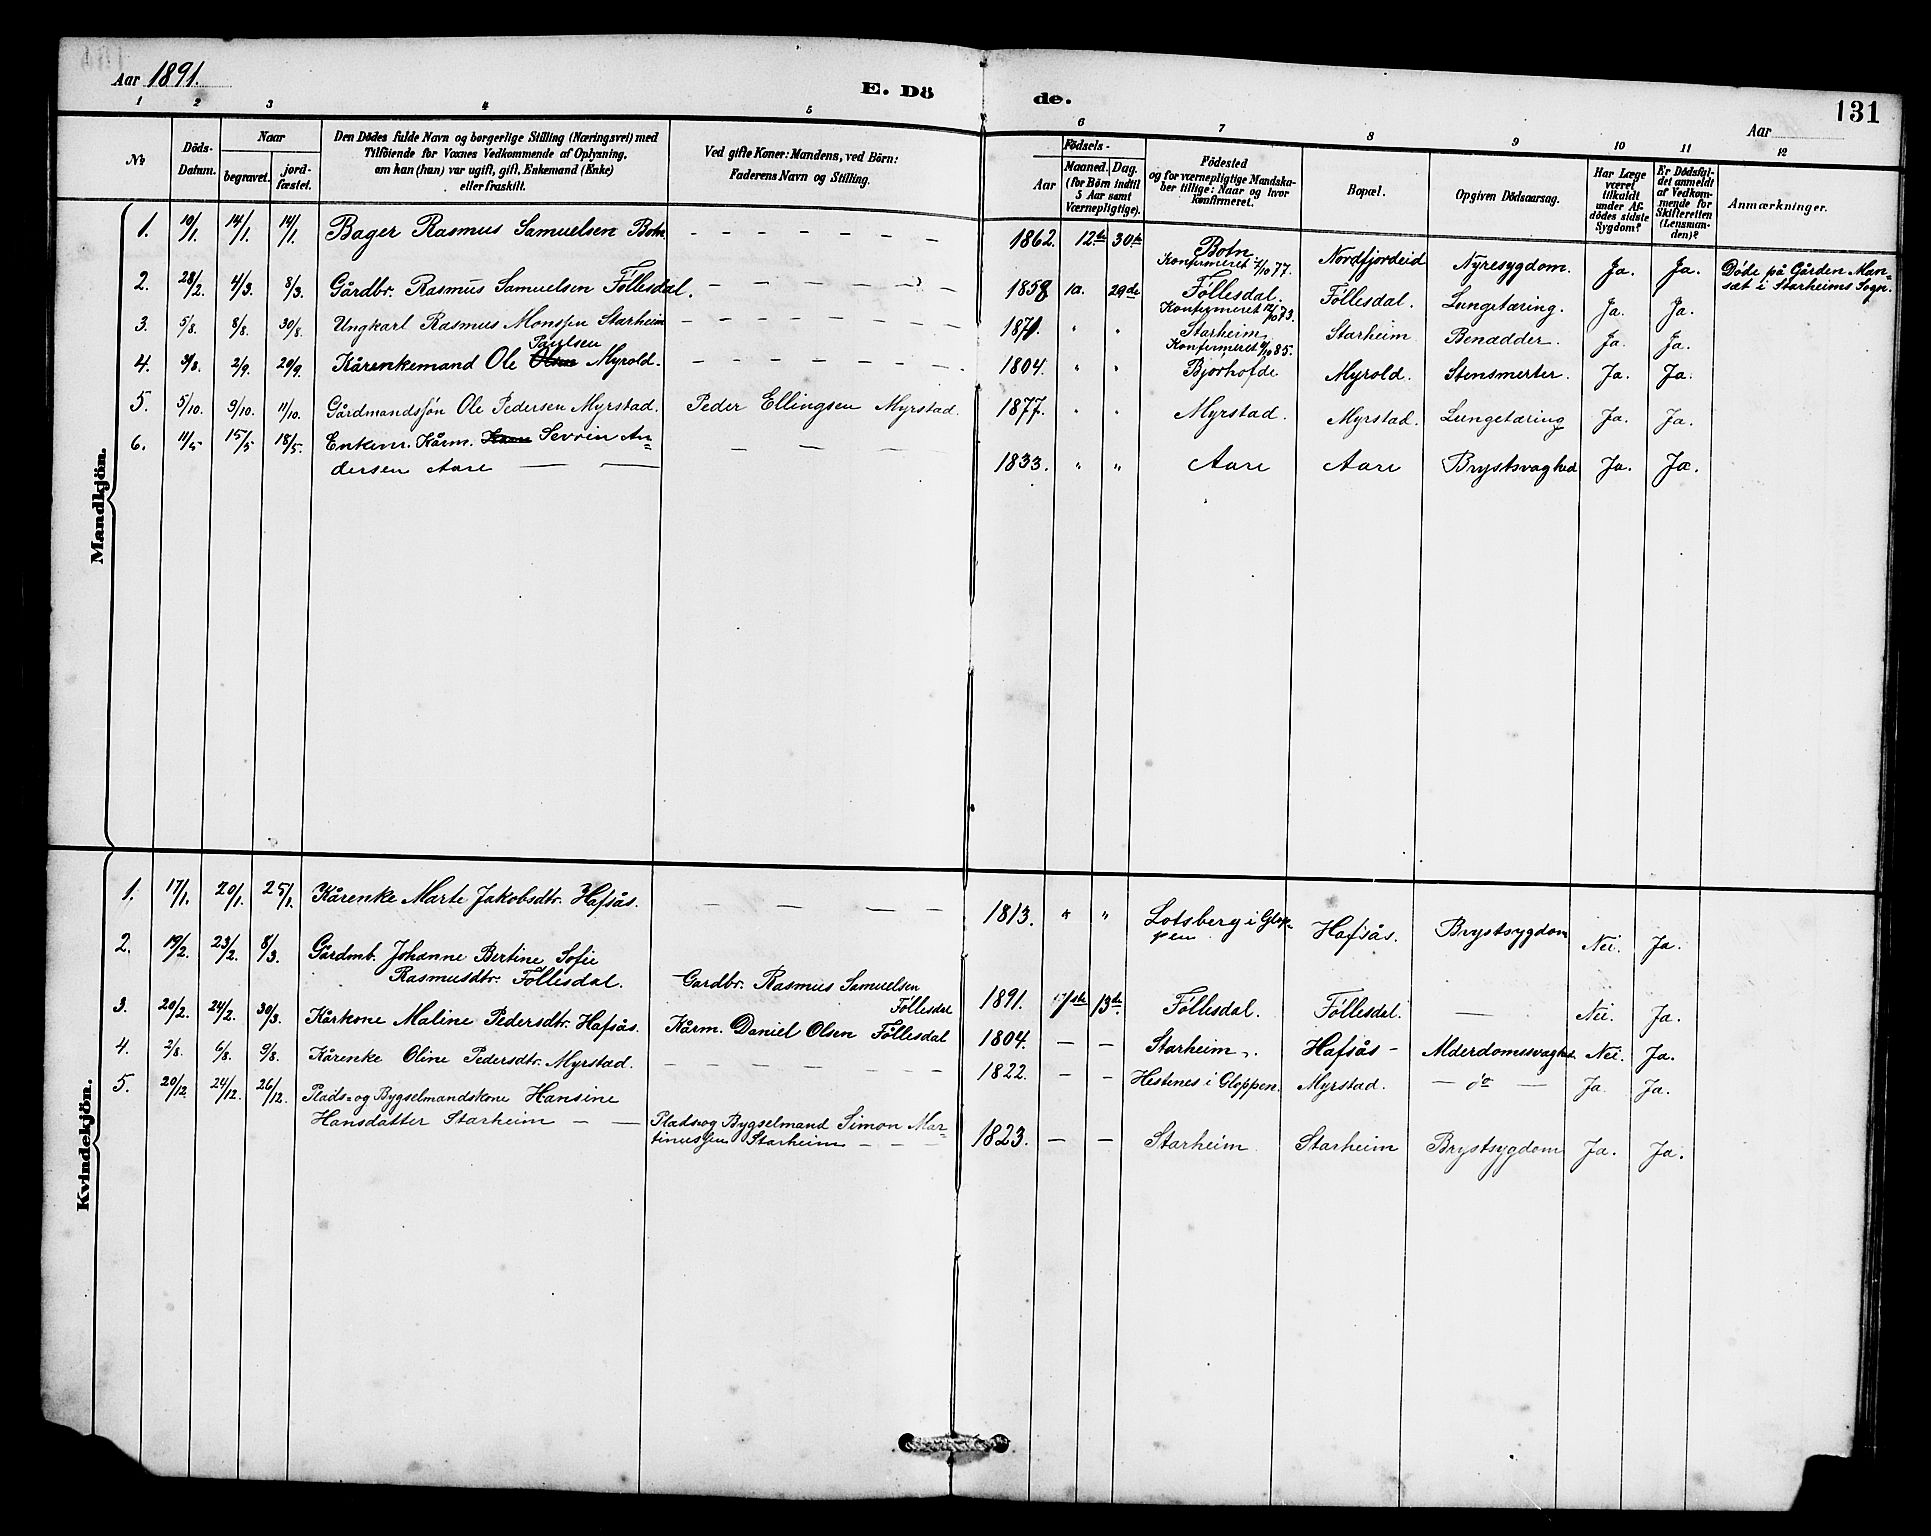 Aar 1891.
E. Dö
de.
131
Aar
1 2 3 4 5 6 7 8 9 10 11 12
No
Döds-
Datum.
Naar
begravet.
jord-
fæstet.
Den Dödes fulde Navn og borgerlige Stilling (Næringsvei) med
Tilföiende for Voxnes Vedkommende af Oplysning,
om han (hun) var ugift, gift, Enkemand (Enke)
eller fraskilt.
Ved gifte Koner: Mandens, ved Börn:
Faderens Navn og Stilling.
Födsels-
Aar
Maaned.
Dag.
(for Börn indtil
5 Aar samt
Værnepligtige).
Födested
og for værnepligtige Mandska-
ber tillige: Naar og hvor
konfirmeret.
Bopæl.
Opgiven Dödsaarsag.
Har Læge
været
tilkaldt
under Af-
dödes sidste
Sygdom?
Er Dödsfal-
det anmeldt
af Vedkom-
mende for
Skifteretten
(Lensman-
den)?
Anmærkninger.
Mandkjön.
1. 10/1. 14/1. 14/1. Bager Rasmus Samuelsen Botn. 1862. 12te 30te Botn Konfirmeret 7/10 77. Nordfjordeid Nyresygdom. Ja. Ja. Døde på Gården Man-
sæt i Starheims Sogn.
2. 28/2. 4/3. 8/3. Gårdbr. Rasmus Samuelsen Føllesdal. 1858 10. 29de Føllesdal. Konfirmeret 12/10 73. Føllesdal. Lungetæring. Ja. Ja.
3. 5/8. 8/8. 30/8. Ungkarl Rasmus Monssen Starheim 1871. " " Starheim Konfirmeret 4/10 85. Starheim Benædder. Ja. Ja.
4. 31/8. 2/9. 20/9. Kårenkemand Ole Paulsen Myrold. 1804. " " Bjørhofde Myrold. Stensmerter. Ja. Ja.
5. 5/10. 9/10. 11/10. Gårdmandssøn Ole Pedersen Myrstad. Peder Ellingsen Myrstad. 1877. " " Myrstad. Myrstad. Lungetæring Ja. Ja.
6. 11/5 15/5 18/5. Enkem. Kårm. Sevrin An-
dersen Aare 1833. " " Aare Aare Brystsvaghed Ja. Ja.
Kvindekjön.
1. 17/1. 20/1. 25/1. Kårenke Marte Jakobsdtr. Hafsås. 1813. " " Lotsberg i Glop-
pen Hafsås. Brystsygdom Nei. Ja.
2. 19/2. 23/2. 8/3. Gårdmb. Johanne Bertine Sofie
Rasmusdtr. Føllesdal. Gårdbr. Rasmus Samuelsen
Føllesdal 1891. 13de Føllesdal. Føllesdal. — Nei. Ja.
3. 20/2. 24/2. 30/3. Kårkone Maline Pedersdtr. Hafsås. Kårm. Daniel Olsen Føllesdal 1804. — — Starheim Hafsås — Alderdomssvaghed. Nei. Ja.
4. 2/8. 6/8. 9/8. Kårenke Oline Pedersdtr. Myrstad. 1822. — — Hestenes i Gloppen. Myrstad. — do — Ja. Ja.
5. 20/12. 24/12. 26/12. Plads- og Bygselmandskone Hansine
Hansdatter Starheim Plads- og Bygselmand Simon Mar-
tinussen Starheim 1823. — — Starheim Starheim Brystsygdom Ja. Ja.